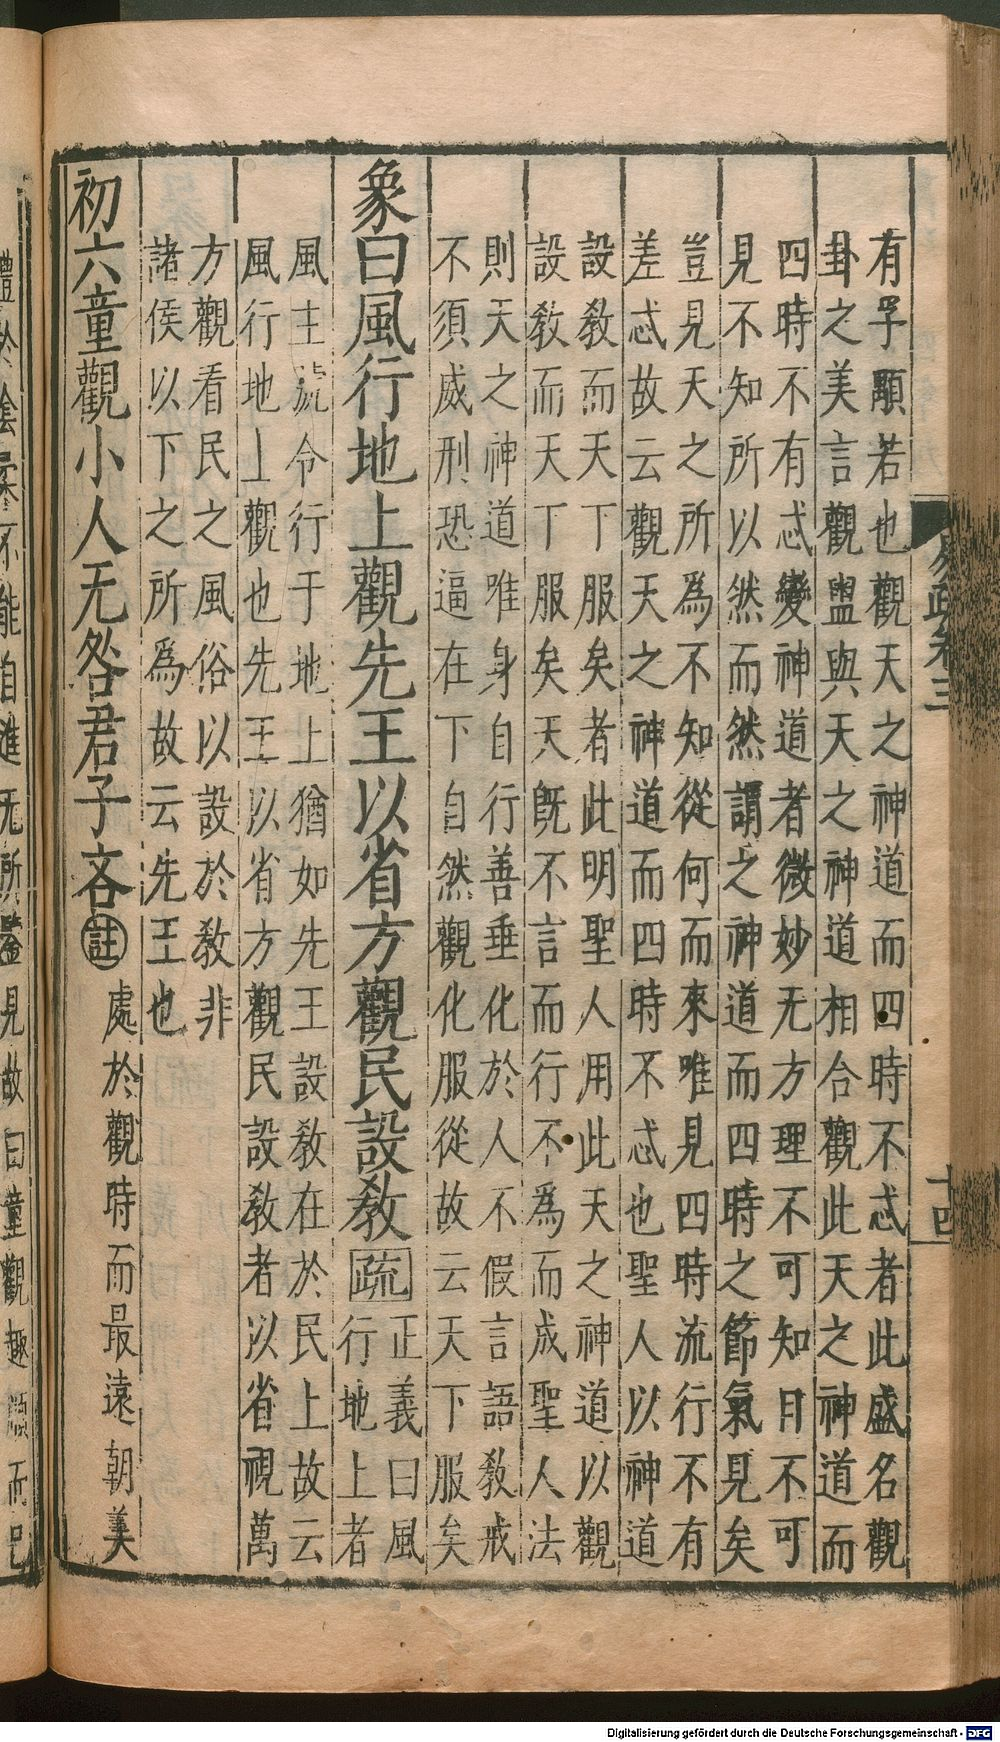 有孚顒若也觀天之神道而四時不忒者此盛名觀
卦之美言觀盥與天之神道相合觀此天之神道而
四時不有忒變神道者微妙无方理不可知目不可
見不知所以然而然謂之神道而四時之節氣見矣
豈見天之所爲不知從何而來唯見四時流行不有
差忒故云觀天之神道而四時不忒也聖人以神道
設教而天下服矣者此明聖人用此天之神道以觀
設教而天下服矣天旣不言而行不爲而成聖人法
則天之神道唯身自行善垂化於人不假言語教戒
不須威刑恐逼在下自然觀化服從故云天下服矣
象曰風行地上觀先王以省方觀民設教疏正義曰風
行地上者
風主號令行于地上猶如先王設教在於民上故云
風行地上觀也先王以省方觀民設教者以省視萬
方觀看民之風俗以設於教非
諸侯以下之所爲故云先王也
初六童觀小人无咎君子吝註處於觀時而最遠朝美
體於陰柔不能自進无所鑒見故曰童觀趣順而已
周疏卷三
十四
Digitalisierung gefördert durch die Deutsche Forschungsgemeinschaft - DFG